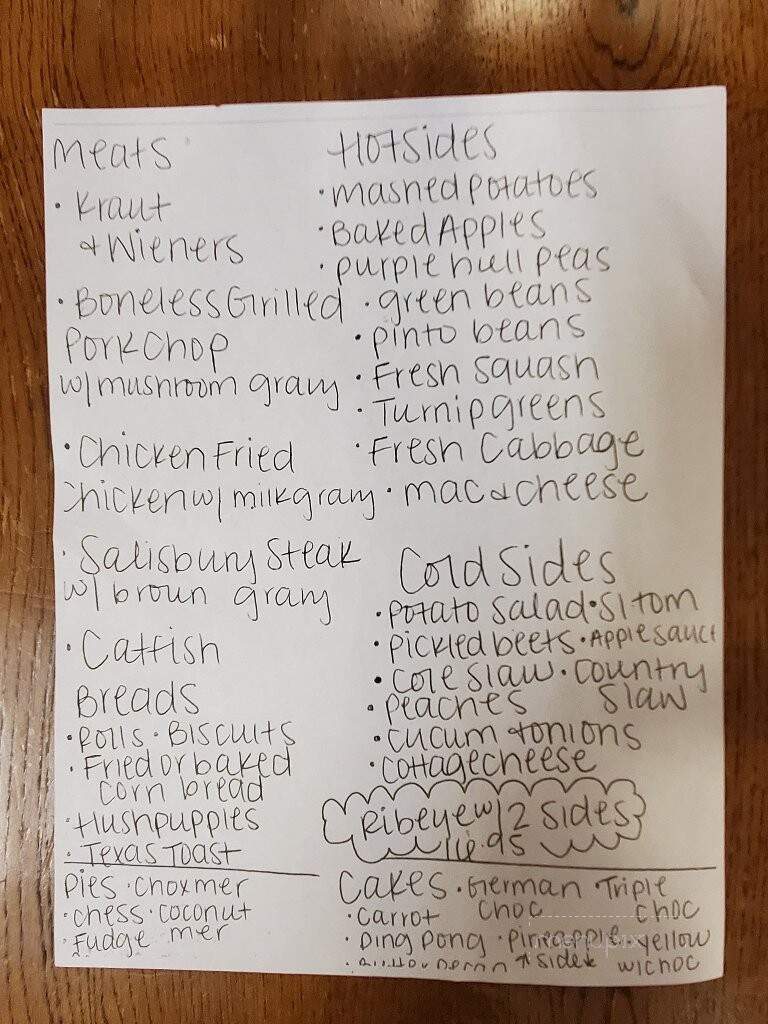 Meats
• Kraut
& Wieners
• Boneless Grilled
Pork Chop
w/ mushroom gravy
• Chicken Fried
Chicken w/ milk gravy
• Salisbury Steak
w/ broun gravy
• Catfish
Breads
• Rolls • Biscuits
• Fried or baked
corn bread
• Hushpuppies
• Texas Toast
Pies • Choxmer
• chess • coconut
mer
• Fudge
Hot sides
• mashed potatoes
• Baked Apples
• purple hull peas
• green beans
• pinto beans
• Fresh squash
• Turnip greens
• Fresh Cabbage
• mac & cheese
Cold Sides
• potato salad • Sl tom
• pickled beets • Apple sauce
• cole slaw • country
slaw
• peaches
• cucum & onions
• cottage cheese
Ribeye w/ 2 sides
16.95
Cakes • German • Triple
• Carrot choc choc
• Ding Dong • Pineapple • yellow
w/ choc